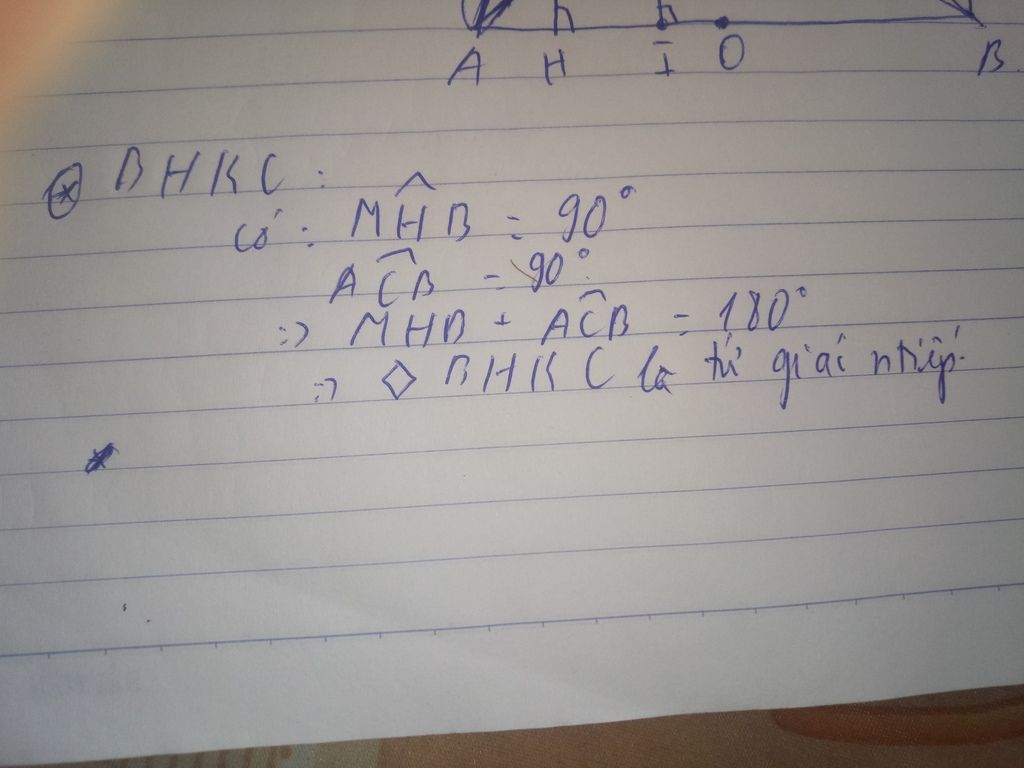 A H I O B
⊛ BHKC :
có : MHB = 90°
ACB = 90°
=> MHB + ACB = 180°
=> ◇ BHKC là tứ giác ntiếp.